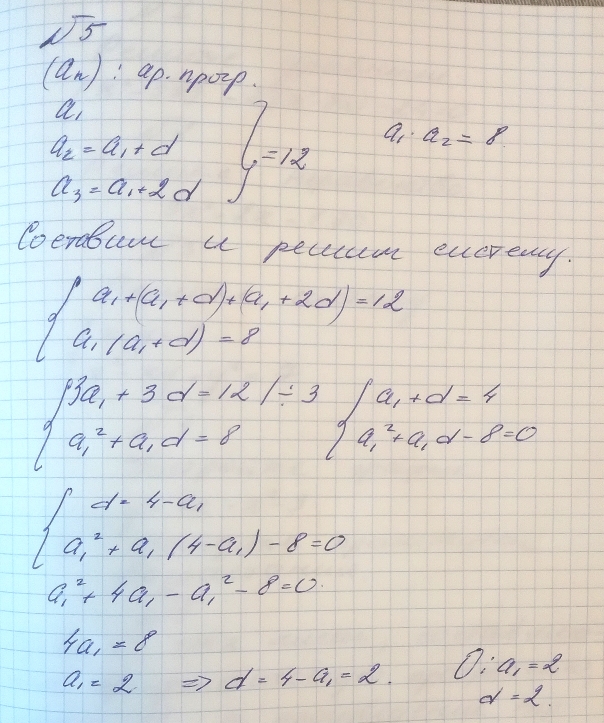 №5
(aₙ) : ар. прогр.
a₁
a₂ = a₁ + d
a₃ = a₁ + 2d
} = 12
a₁ · a₂ = 8
Составим и решим систему.
{ a₁ + (a₁ + d) + (a₁ + 2d) = 12
a₁ (a₁ + d) = 8
{ 3a₁ + 3d = 12 / ÷ 3
a₁² + a₁d = 8
{ a₁ + d = 4
a₁² + a₁d - 8 = 0
{ d = 4 - a₁
a₁² + a₁ (4 - a₁) - 8 = 0
a₁² + 4a₁ - a₁² - 8 = 0.
4a₁ = 8
a₁ = 2 => d = 4 - a₁ = 2.
О: a₁ = 2
d = 2.